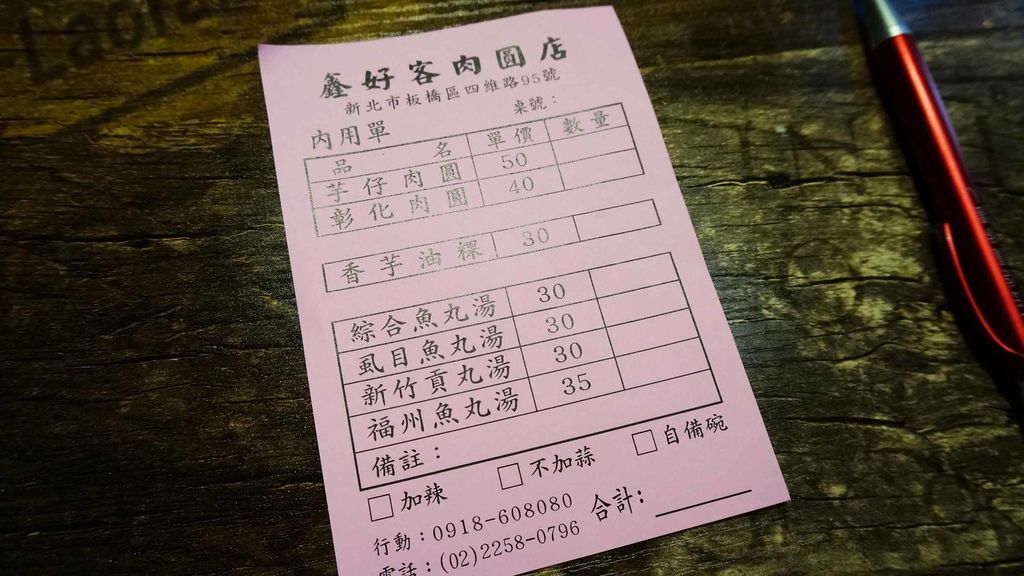 鑫好客肉圓店
新北市板橋區四維路95號
內用單 桌號：
品名 單價 數量
芋仔肉圓 50
彰化肉圓 40
香芋油粿 30
綜合魚丸湯 30
虱目魚丸湯 30
新竹貢丸湯 30
福州魚丸湯 35
備註：
□加辣 □不加蒜 □自備碗
行動：0918-608080 合計：
電話：(02)2258-0796